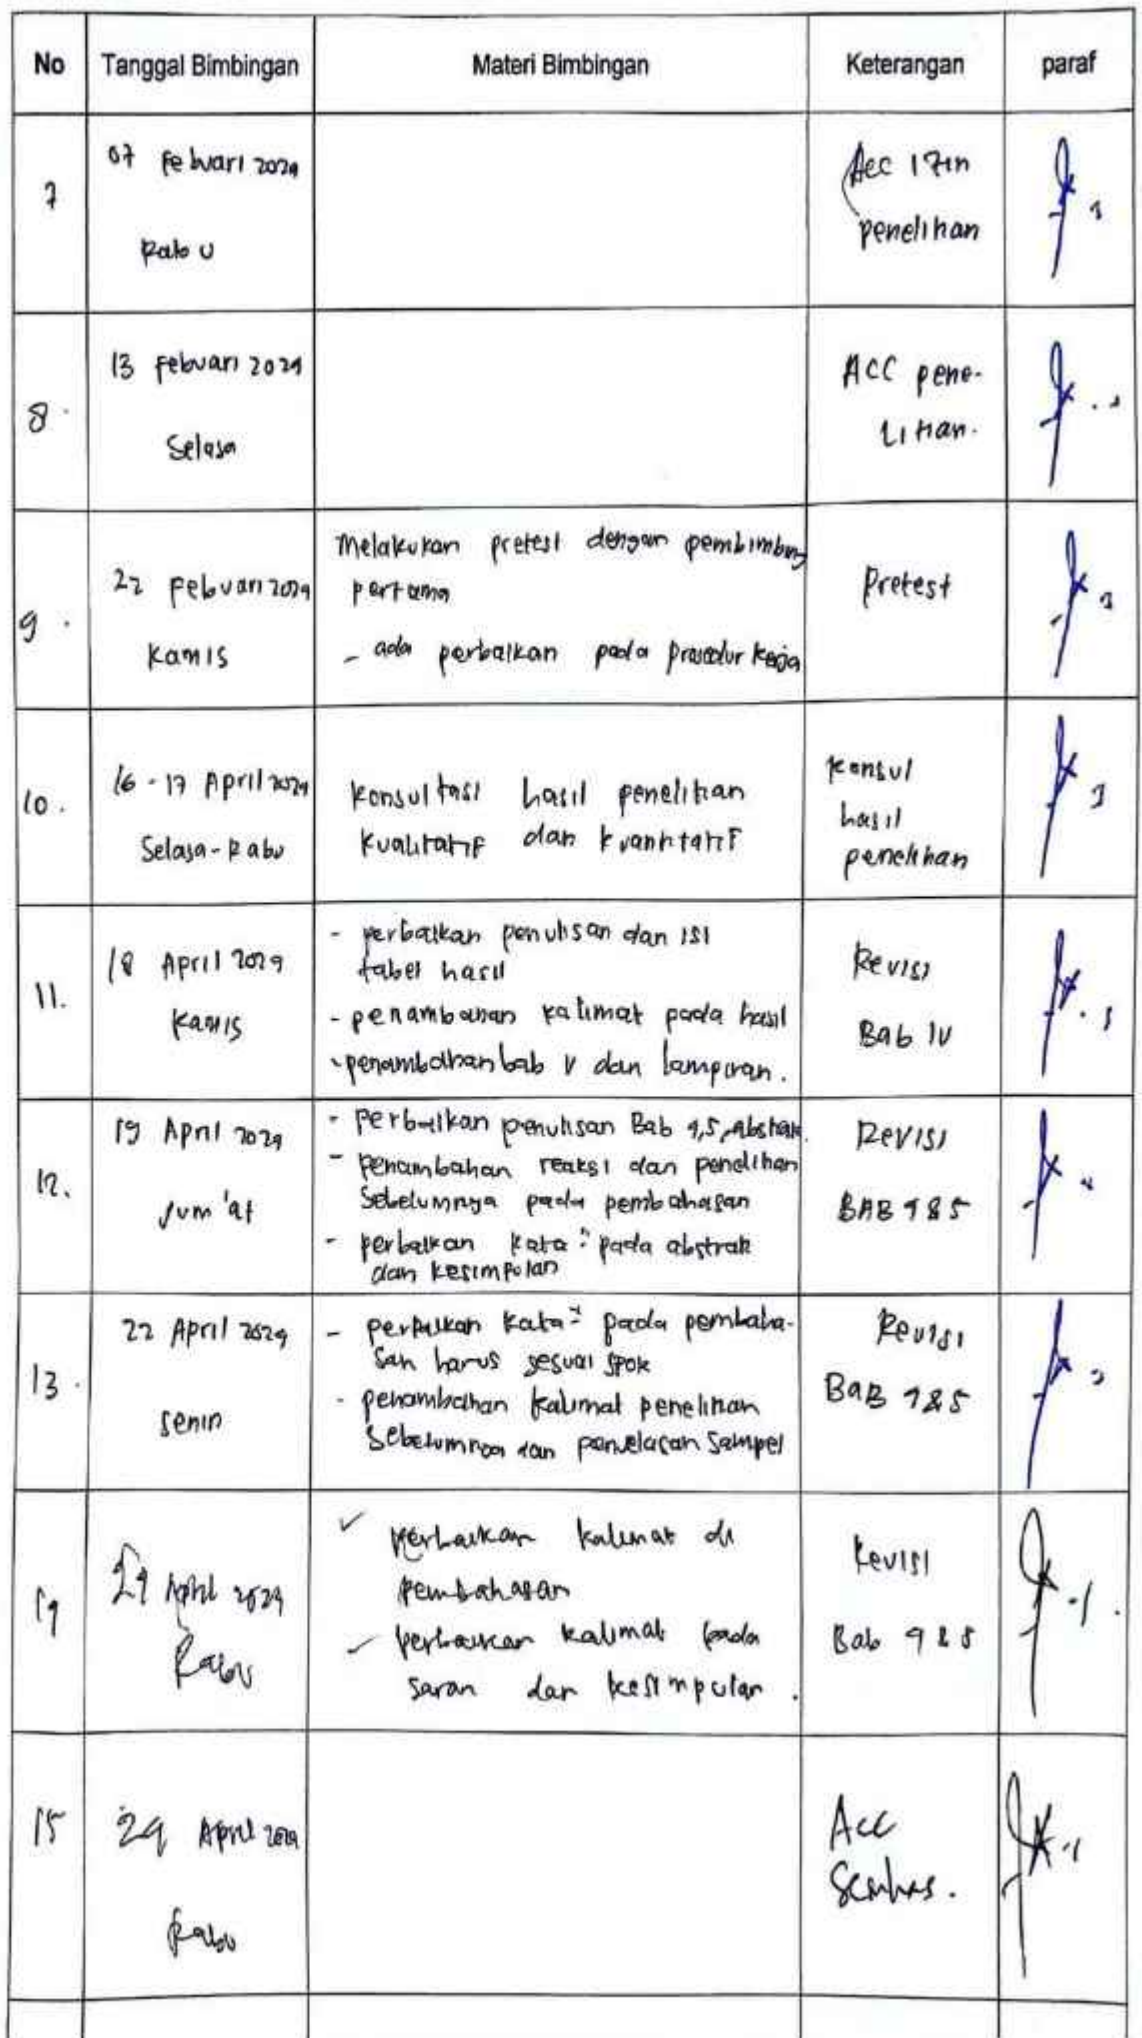 No Tanggal Bimbingan Materi Bimbingan Keterangan paraf
7
07 Febuari 2024
Rabu
Acc Izin
penelitian
8.
13 Febuari 2024
Selasa
ACC pene-
litian.
9.
22 Febuari 2024
Kamis
Melakukan pretest dengan pembimbing
pertama
- ada perbaikan pada prosedur kerja
Pretest
10.
16 - 17 April 2024
Selasa - Rabu
Konsultasi hasil penelitian
kualitatif dan kuantitatif
Konsul
hasil
penelitian
11.
18 April 2024
Kamis
- perbaikan penulisan dan isi
tabel hasil
- penambahan kalimat pada hasil
- penambahan bab V dan lampiran.
Revisi
Bab IV
12.
19 April 2024
Jum'at
- Perbaikan penulisan Bab 4,5, Abstrak.
- penambahan reaksi dan penelitian
Sebelumnya pada pembahasan
- perbaikan kata" pada abstrak
dan kesimpulan
Revisi
BAB 4 & 5
13.
22 April 2024
Senin
- perbaikan kata" pada pembaha-
san harus sesuai SPOK
- penambahan kalimat penelitian
sebelumnya dan penjelasan sampel
Revisi
BAB 4 & 5
14
24 April 2024
Rabu
✓ Perbaikan kalimat di
pembahasan
✓ perbaikan kalimat pada
saran dan kesimpulan.
Revisi
Bab 4 & 5
15
24 April 2024
Rabu
Acc
Semhas.